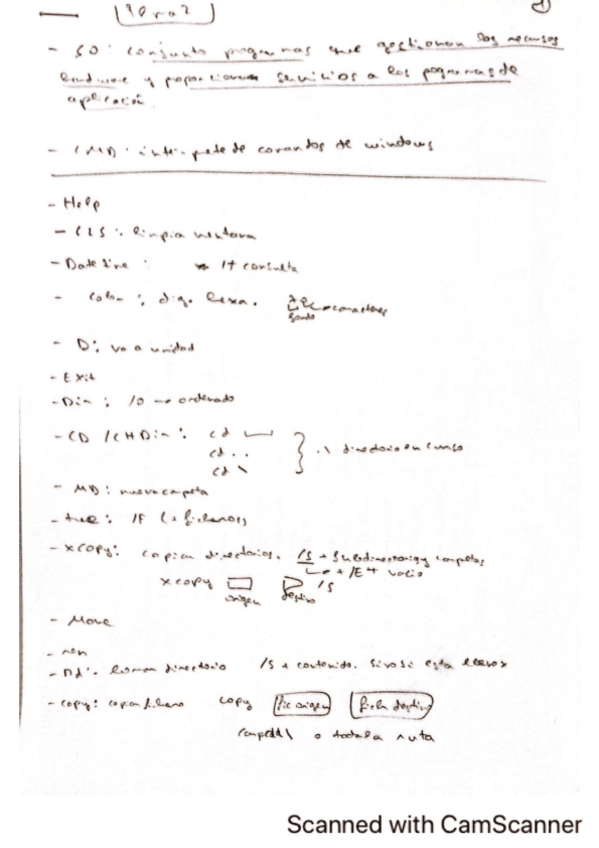 - SO: conjunto programas que gestionan los recursos
hardware y proporcionan servicios a los programas de
aplicación.
- CMD: intérprete de comandos de windows
- Help
- CLS: limpia ventana
- Date time : /t consulta
- Color: dig. hexa. caracteres
fondo
- D: va a unidad
- Exit
- Dir: /O → ordenado
- CD / CHDir: cd
cd ..
cd \
.\ directorio en curso
- MD: nueva carpeta
- tree: /F (+ ficheros)
- xcopy: copiar directorios. /S + Subdirectorios y completos
↳ + /E + vacio
xcopy /S
origen destino
- Move
- ren
- Rd: borrar directorio /S + contenido.
- copy: copia fichero copy fic origen fich destino
o toda la ruta
Scanned with CamScanner